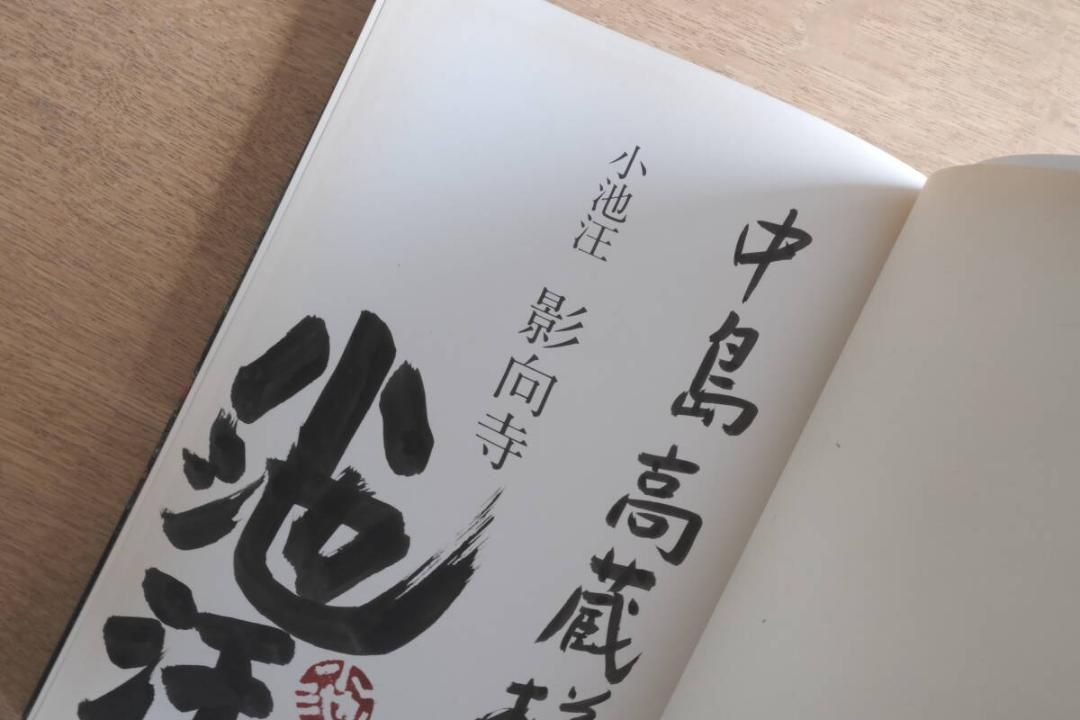 中島高蔵様
小池汪 影向寺
小池汪